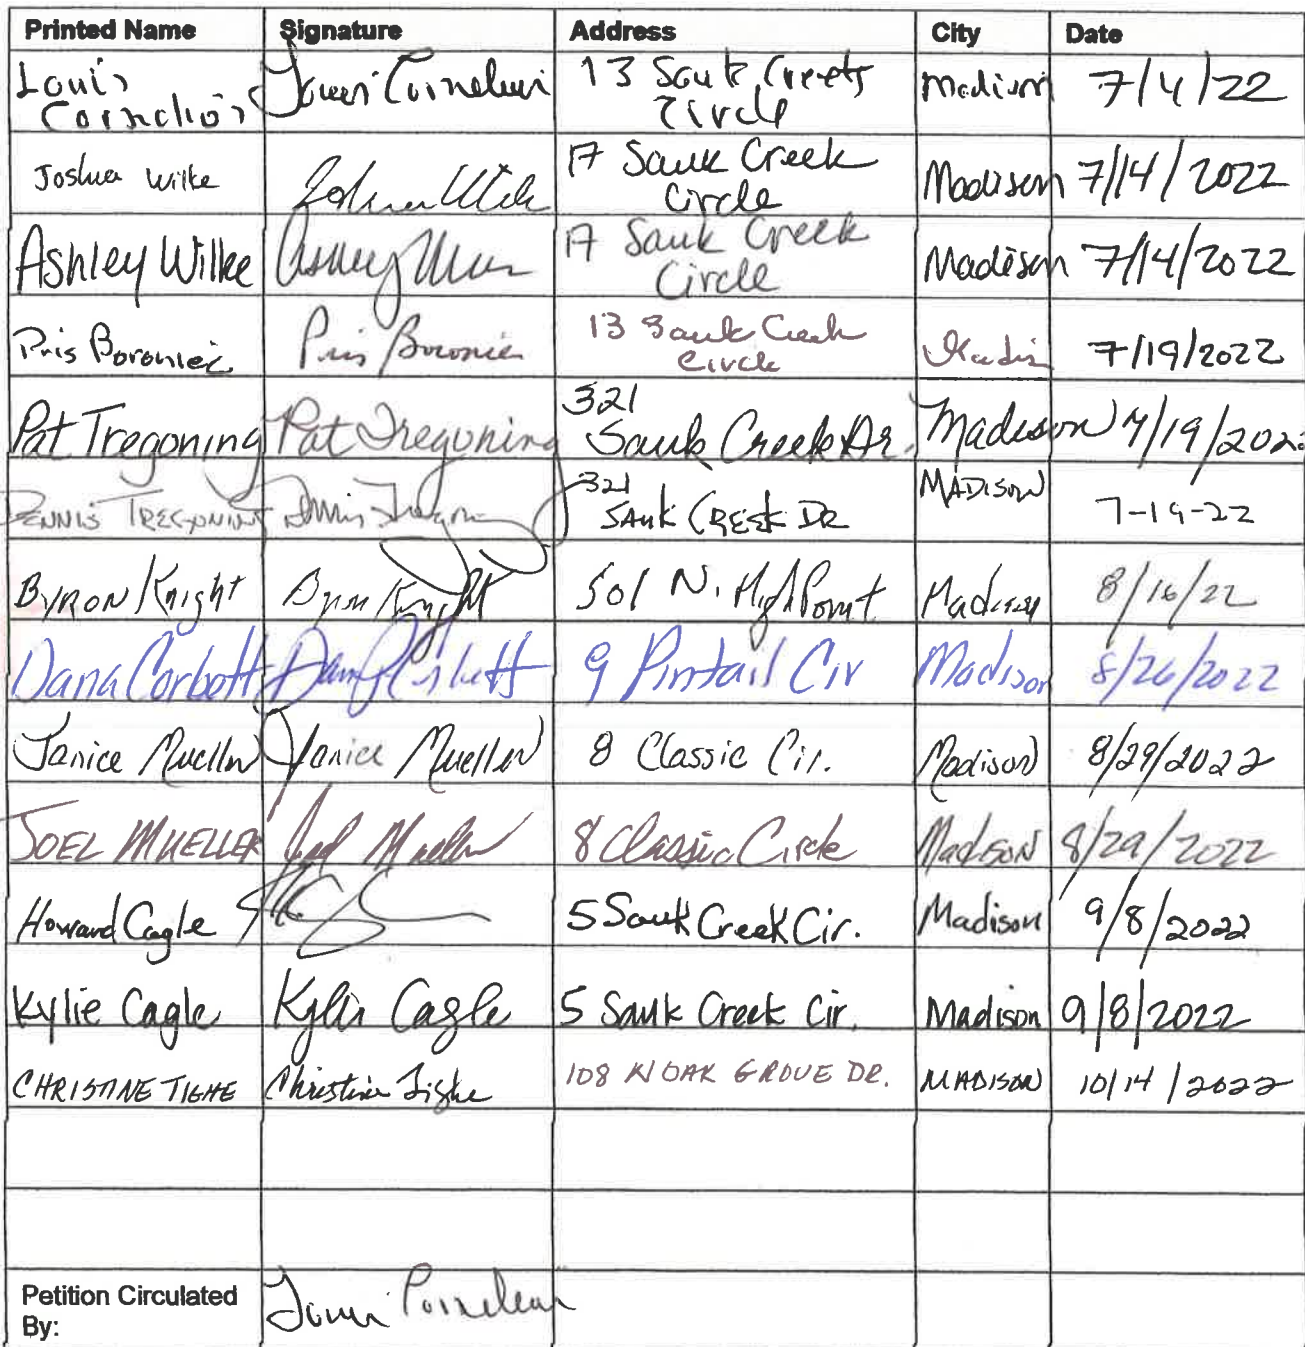 Printed Name Signature Address City Date
Louis Cornelius Louis Cornelius 13 Sauk Creek Circle Madison 7/4/22
Joshua Wilke Joshua Wilke 17 Sauk Creek Circle Madison 7/14/2022
Ashley Wilke Ashley Wilke 17 Sauk Creek Circle Madison 7/14/2022
Pris Boroniec Pris Boroniec 13 Sauk Creek Circle Madis 7/19/2022
Pat Tregoning Pat Tregoning 321 Sauk Creek Dr. Madison 7/19/202
DENNIS TREGONING Dennis Tregoning 321 SAUK CREEK DR MADISON 7-19-22
BYRON Knight Byron Knight 501 N. High Point Madison 8/16/22
Dana Corbett Dana Corbett 9 Pintail Cir Madison 8/26/2022
Janice Mueller Janice Mueller 8 Classic Cir. Madison 8/29/2022
JOEL MUELLER Joel Mueller 8 Classic Circle Madison 8/29/2022
Howard Cagle 5 Sauk Creek Cir. Madison 9/8/2022
Kylie Cagle Kylie Cagle 5 Sauk Creek Cir. Madison 9/8/2022
CHRISTINE TIGHE Christine Tighe 108 N OAK GROVE DR. MADISON 10/14/2022
Petition Circulated By: Louis Cornelius